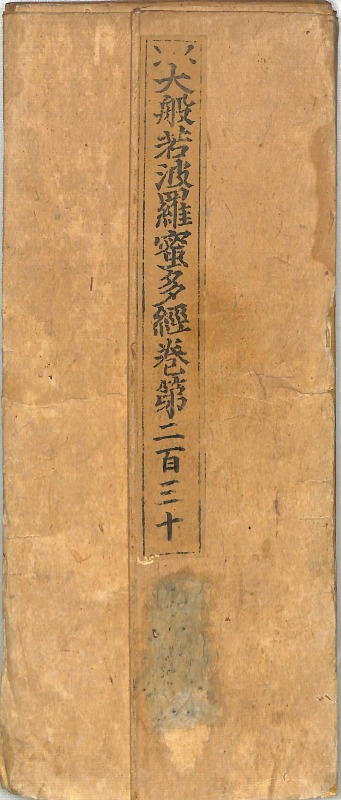 大般若波羅蜜多經卷第二百三十